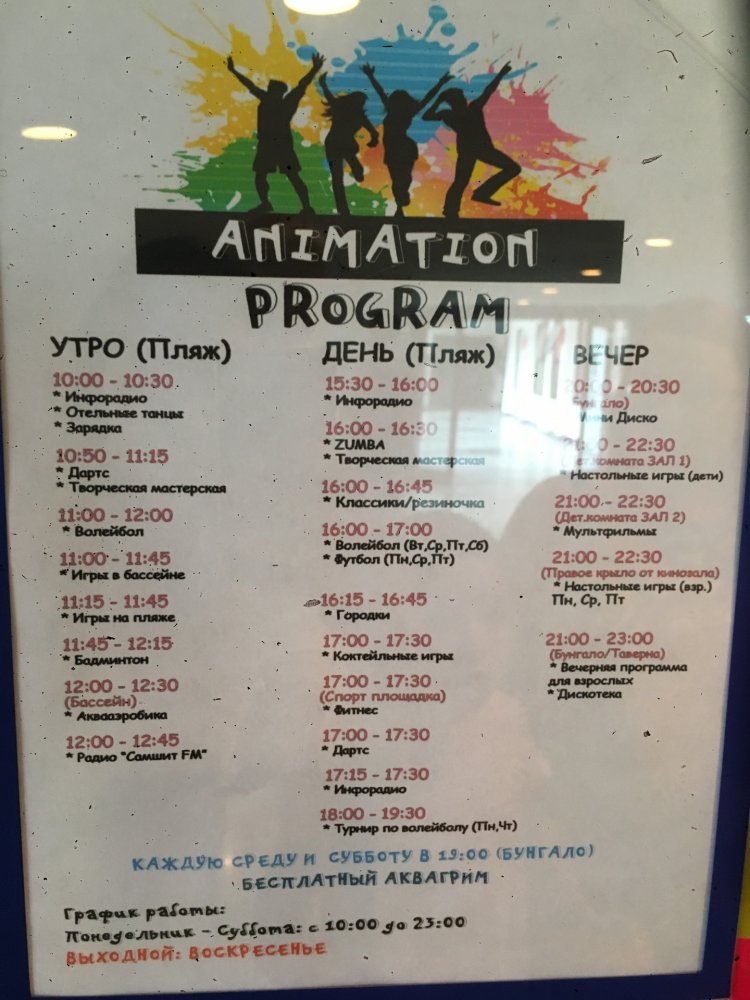 ANIMATION
PROGRAM
УТРО (Пляж)
10:00 - 10:30
* Инфорадио
* Отельные танцы
* Зарядка
10:50 - 11:15
* Дартс
* Творческая мастерская
11:00 - 12:00
* Волейбол
11:00 - 11:45
* Игры в бассейне
11:15 - 11:45
* Игры на пляже
11:45 - 12:15
* Бадминтон
12:00 - 12:30
(Бассейн)
* Аквааэробика
12:00 - 12:45
* Радио "Самшит FM"
ДЕНЬ (Пляж)
15:30 - 16:00
* Инфорадио
16:00 - 16:30
* ZUMBA
* Творческая мастерская
16:00 - 16:45
* Классики/резиночка
16:00 - 17:00
* Волейбол (Вт,Ср,Пт,Сб)
* Футбол (Пн,Ср,Пт)
16:15 - 16:45
* Городки
17:00 - 17:30
* Коктейльные игры
17:00 - 17:30
(Спорт площадка)
* Фитнес
17:00 - 17:30
* Дартс
17:15 - 17:30
* Инфорадио
18:00 - 19:30
* Турнир по волейболу (Пн,Чт)
ВЕЧЕР
20:00 - 20:30
(Бунгало)
* Мини Диско
21:00 - 22:30
(Дет.комната ЗАЛ 1)
* Настольные игры (дети)
21:00 - 22:30
(Дет.комната ЗАЛ 2)
* Мультфильмы
21:00 - 22:30
(Правое крыло от кинозала)
* Настольные игры (взр.)
Пн, Ср, Пт
21:00 - 23:00
(Бунгало/Таверна)
* Вечерняя программа
для взрослых
* Дискотека
КАЖДУЮ СРЕДУ И СУББОТУ В 19:00 (БУНГАЛО)
БЕСПЛАТНЫЙ АКВАГРИМ
График работы:
Понедельник - Суббота: с 10:00 до 23:00
ВЫХОДНОЙ: ВОСКРЕСЕНЬЕ